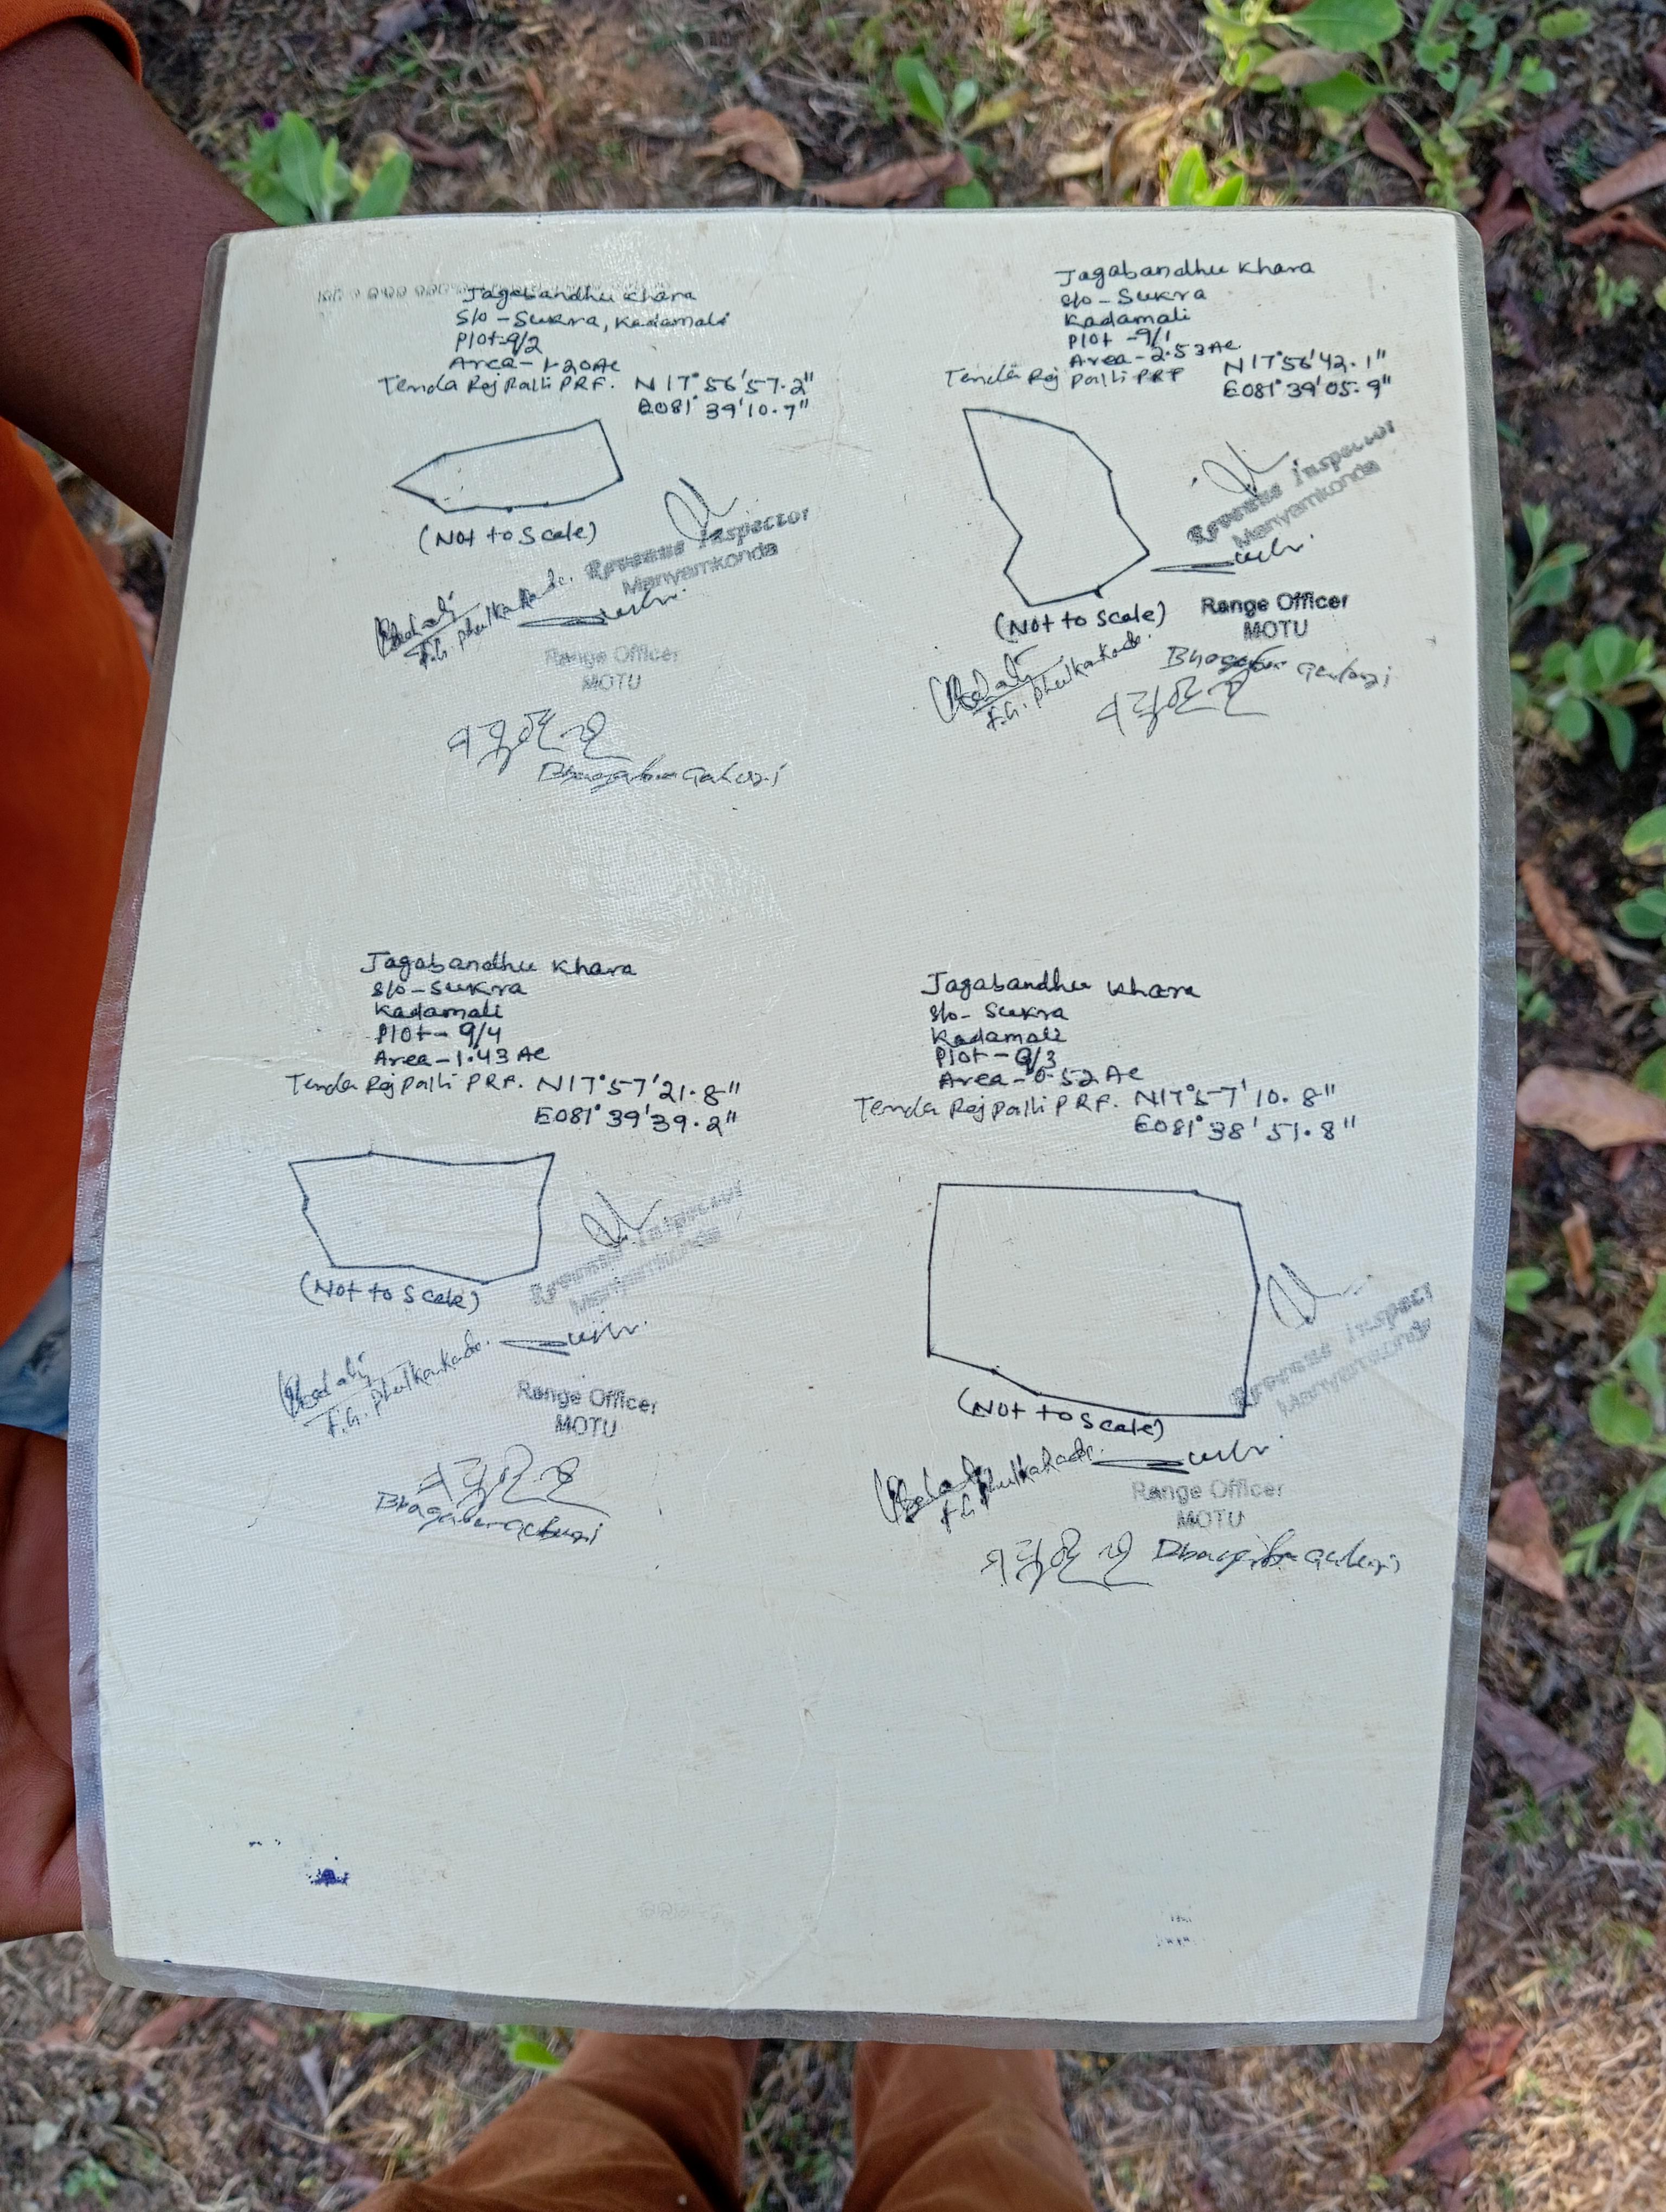 Jagabandhu Khara
S/o - Sukra, Kadamali
Plot-9/2
Area-1.20 Ac
Tenda Raj Palli PRF. N17°56'57.2"
E081°39'10.7"
(Not to Scale)
Revenue Inspector
Manyamkonda
F.G. Phulkakadr.
Range Officer
MOTU
Jagabandhu Khara
S/o - Sukra
Kadamali
Plot -9/1
Area-2.53 Ac
Tenda Raj Palli PRF N17°56'42.1"
E081°39'05.9"
Revenue Inspector
Manyamkonda
(Not to Scale)
Range Officer
MOTU
Jagabandhu Khara
S/o - Sukra
Kadamali
Plot- 9/4
Area-1.43 Ac
Tenda Raj Palli PRF. N17°57'21.8"
E081°39'39.2"
(Not to Scale)
Revenue Inspector
Manyamkonda
Range Officer
MOTU
Jagabandhu Khara
S/o- Sukra
Kadamali
Plot- 9/3
Area-0.52 Ac
Tenda Raj Palli PRF. N17°57'10.8"
E081°38'51.8"
(Not to Scale)
Range Officer
MOTU